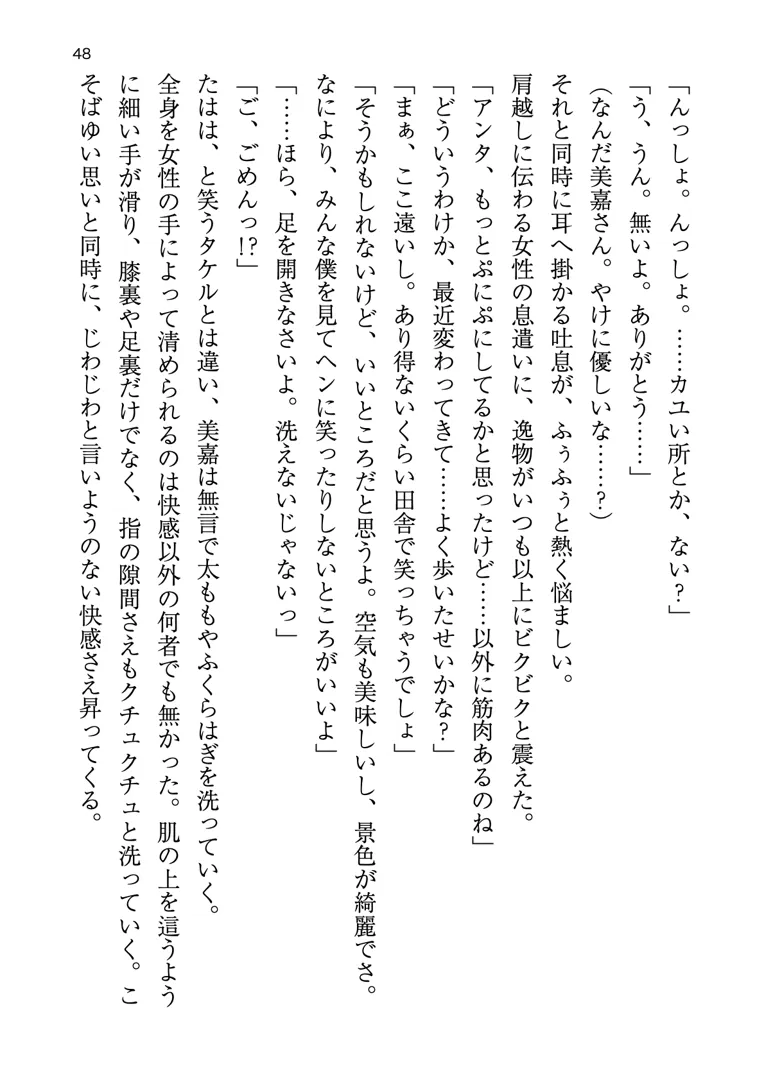 48
「んっしょ。んっしょ。……カユい所とか、ない?」
「う、うん。無いよ。ありがとう……」
(なんだ美嘉さん。やけに優しいな……?)
それと同時に耳へ掛かる吐息が、ふぅふぅと熱く悩ましい。
肩越しに伝わる女性の息遣いに、逸物がいつも以上にビクビクと震えた。
「アンタ、もっとぷにぷにしてるかと思ったけど……以外に筋肉あるのね」
「どういうわけか、最近変わってきて……よく歩いたせいかな?」
「まぁ、ここ遠いし。あり得ないくらい田舎で笑っちゃうでしょ」
「そうかもしれないけど、いいところだと思うよ。空気も美味しいし、景色が綺麗でさ。
なにより、みんな僕を見てヘンに笑ったりしないところがいいよ」
「……ほら、足を開きなさいよ。洗えないじゃないっ」
「ご、ごめんっ!?」
たはは、と笑うタケルとは違い、美嘉は無言で太ももやふくらはぎを洗っていく。
全身を女性の手によって清められるのは快感以外の何者でも無かった。肌の上を這うよう
に細い手が滑り、膝裏や足裏だけでなく、指の隙間さえもクチュクチュと洗っていく。こ
そばゆい思いと同時に、じわじわと言いようのない快感さえ昇ってくる。